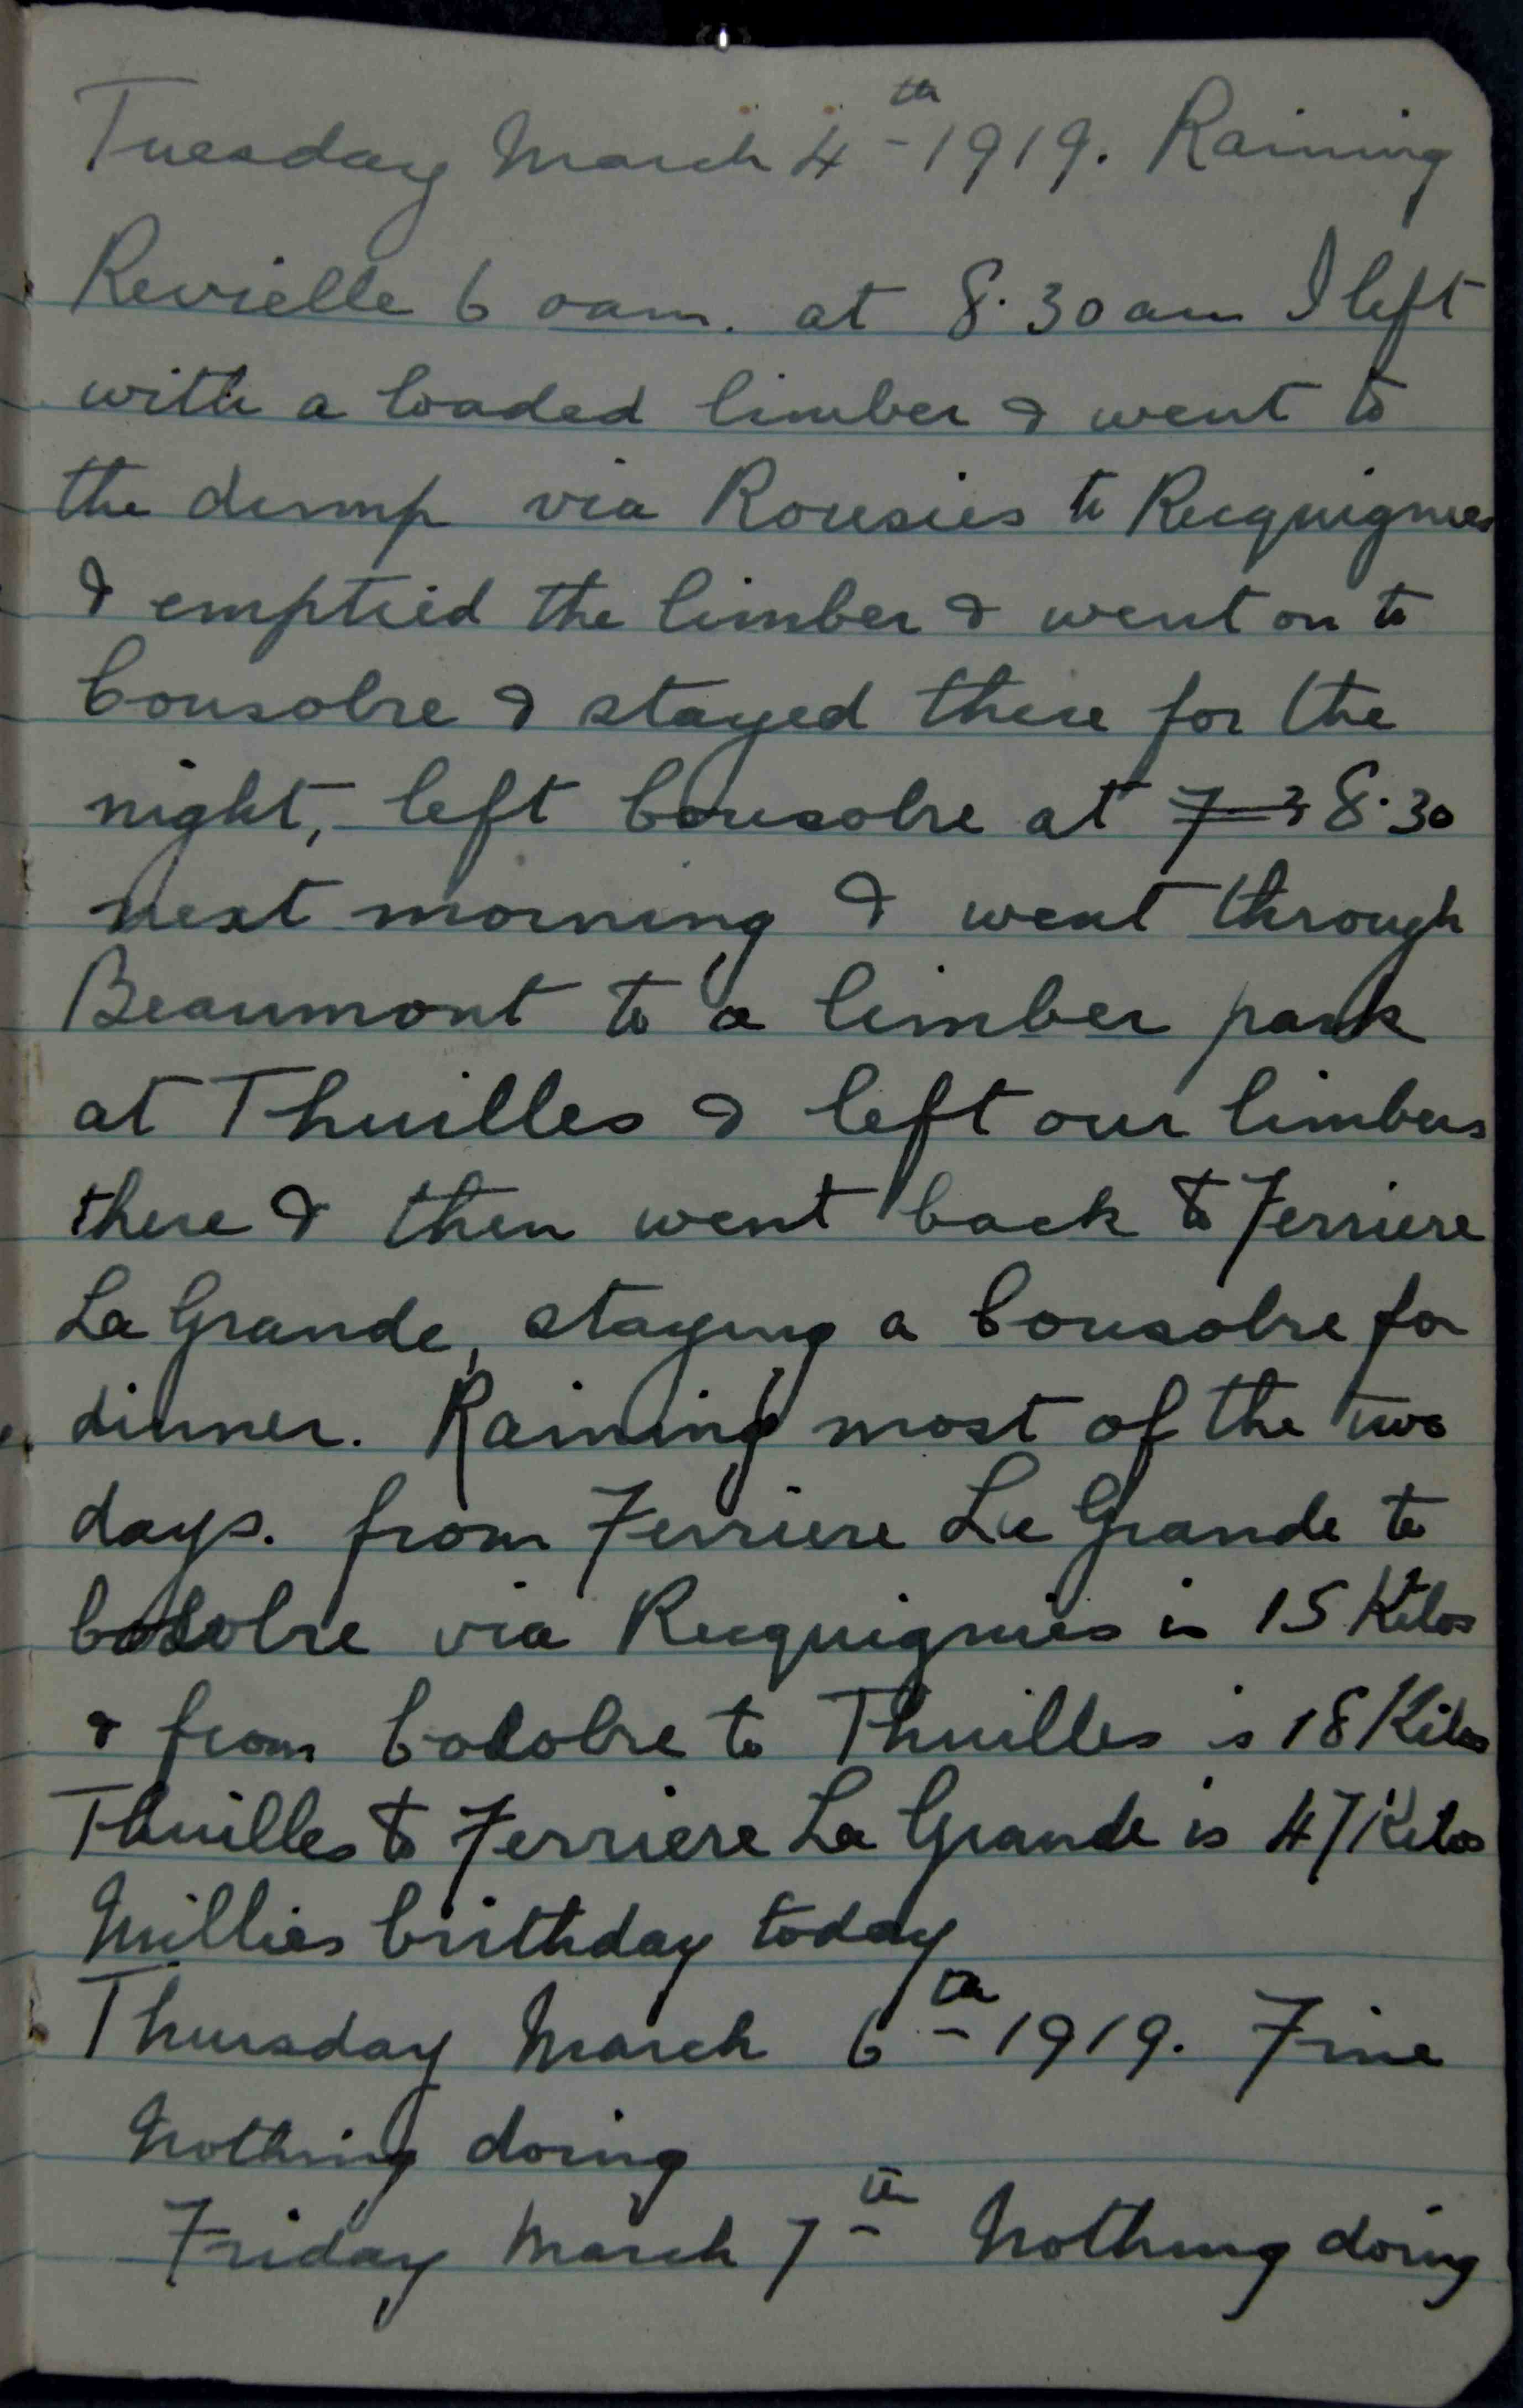 Tuesday March 4th 1919. Raining
Revielle 6 oam. at 8.30 am I left
with a loaded limber & went to
the dump via Rousies to Recquignies
& emptied the limber & went on to
Cousolre & stayed there for the
night, left Cousolre at 7 3 8.30
next morning & went through
Beaumont to a limber park
at Thuilles & left our limbers
there & then went back to Ferriere
La Grande, staying a Cousolre for
dinner. Raining most of the two
days. from Ferriere La Grande to
Cosolre via Recquignies is 15 Kilos
& from Cosolre to Thuilles is 18 Kilos
Thuilles to Ferriere La Grande is 47 Kilos
Millies birthday today
Thursday March 6th 1919. Fine
Nothing doing
Friday March 7th Nothing doing